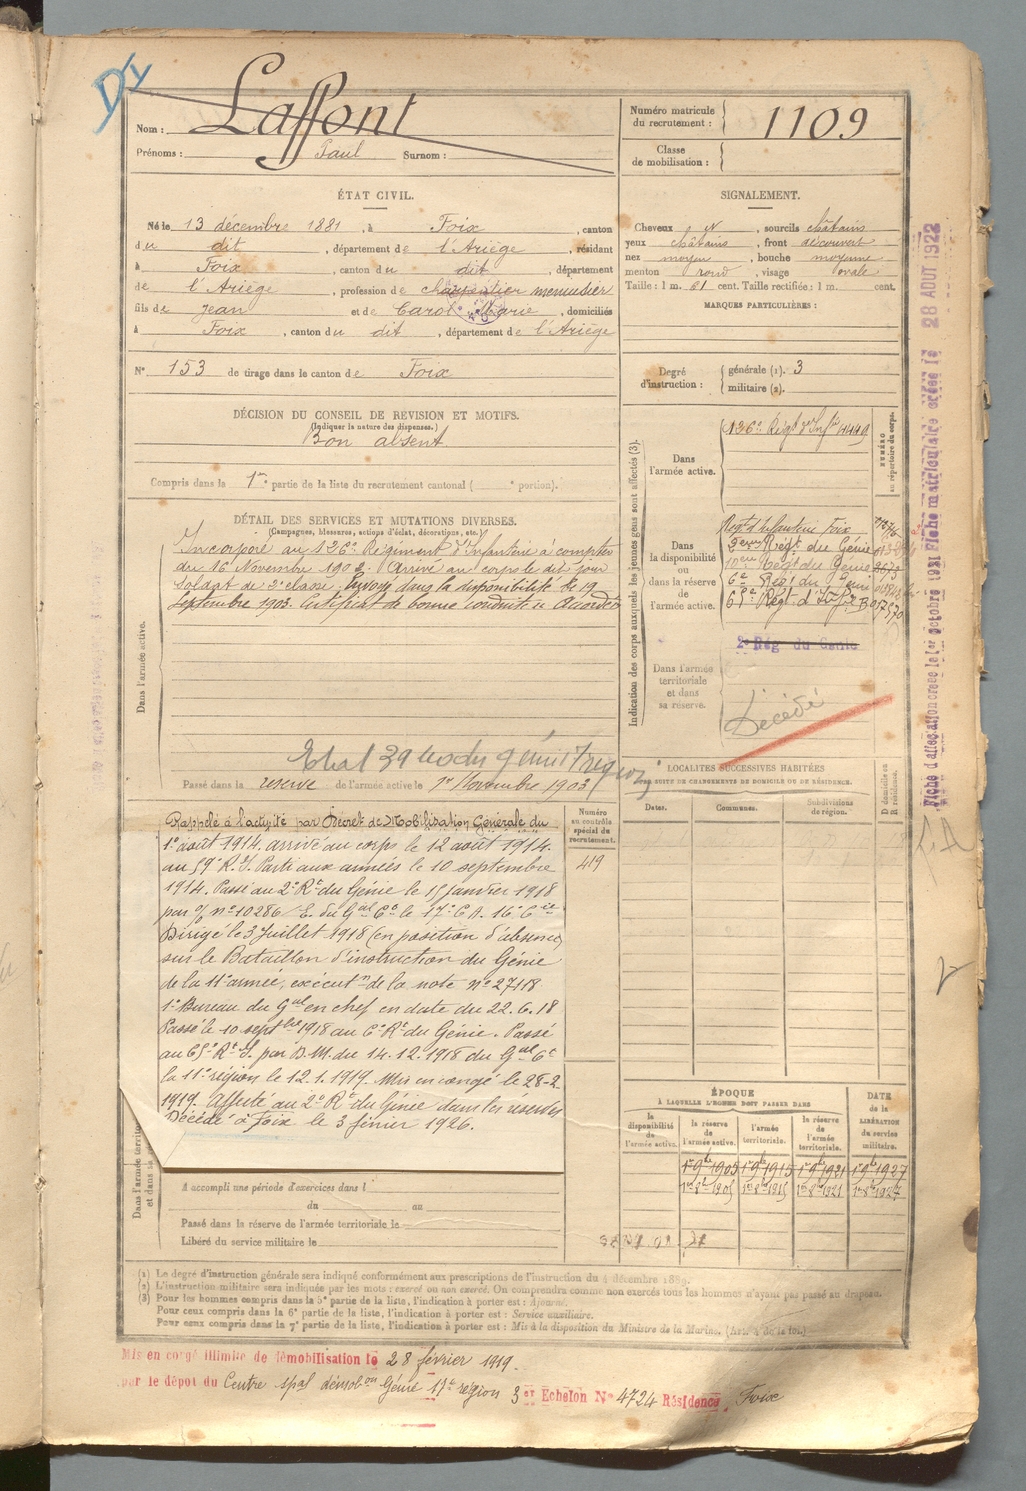 Dy
Nom : Laffont
Prénoms : Paul Surnom :
Numéro matricule du recrutement : 1109
Classe de mobilisation :
ÉTAT CIVIL.
Né le 13 décembre 1881, à Foix, canton
du dit, département de l'Ariège, résidant
à Foix, canton du dit, département
de l'Ariège, profession de charpentier menuisier
fils de Jean et de Carol Marie, domiciliés
à Foix, canton du dit, département de l'Ariège
N° 153 de tirage dans le canton de Foix
SIGNALEMENT.
Cheveux N, sourcils châtains
yeux châtains, front découvert
nez moyen, bouche moyenne
menton rond, visage ovale
Taille : 1 m. 61 cent. Taille rectifiée : 1 m. cent.
MARQUES PARTICULIÈRES :
Degré d'instruction : générale (1). 3
militaire (2).
DÉCISION DU CONSEIL DE REVISION ET MOTIFS.
(Indiquer la nature des dispenses.)
Bon absent
Compris dans la 1re partie de la liste du recrutement cantonal ( e portion).
DÉTAIL DES SERVICES ET MUTATIONS DIVERSES.
(Campagnes, blessures, actions d'éclat, décorations, etc.)
Incorporé au 126e Régiment d'Infanterie à compter
du 16 Novembre 1902. Arrivé au corps le dit jour
soldat de 2e classe. Envoyé dans la disponibilité le 19
Septembre 1903. Certificat de bonne conduite accordé
Dans l'armée active.
Passé dans la réserve de l'armée active le 1er Novembre 1903
Indication des corps auxquels les jeunes gens sont affectés (3).
NUMÉRO au répertoire du corps.
Dans l'armée active.
126e Régt d'Infie
Dans la disponibilité ou dans la réserve de l'armée active.
Régt d'Infanterie Foix
2eme Régt du Génie
10eme Régt du Génie
6e Régt du Génie
65e Régt d'Infie
2e Rég du Génie
Dans l'armée territoriale et dans sa réserve.
Décédé
LOCALITÉS SUCCESSIVES HABITÉES
PAR SUITE DE CHANGEMENTS DE DOMICILE OU DE RÉSIDENCE.
Dates.
Communes.
Subdivisions de région.
D domicile ou R résidence.
Numéro au contrôle spécial du recrutement.
419
Rappelé à l'activité par Décret de Mobilisation Générale du
1er août 1914. arrivé au corps le 12 août 1914.
au 59e R.I. Parti aux armées le 10 septembre
1914. Passé au 2e Rt du Génie le 15 Janvier 1918
par n° 10286 E. du Gal Ct le 17e C.A. 16e Cie
Dirigé le 3 Juillet 1918 (en position d'absence)
sur le Bataillon d'instruction du Génie
de la 11e armée, exécutn de la note n° 27118
1er Bureau du Gal en chef en date du 22.6.18
Passé le 10 septbre 1918 au 6e Rt du Génie. Passé
au 65e Rt I. par D.M. du 14.12.1918 du Gal Ct
la 11e région le 12.1.1919. Mis en congé le 28-2
1919. Affecté au 2e Rt du Génie dans les réserves
Décédé à Foix le 3 février 1926.
A accompli une période d'exercices dans l
du au
Passé dans la réserve de l'armée territoriale le
Libéré du service militaire le
ÉPOQUE
À LAQUELLE L'HOMME DOIT PASSER DANS
la disponibilité de l'armée active.
la réserve de l'armée active.
l'armée territoriale.
la réserve de l'armée territoriale.
DATE de la LIBÉRATION du service militaire.
1er 9bre 1905 1er 9bre 1915 1er 9bre 1921 1er 9bre 1927
(1) Le degré d'instruction générale sera indiqué conformément aux prescriptions de l'instruction du 4 décembre 1889.
(2) L'instruction militaire sera indiquée par les mots : exercé ou non exercé. On comprendra comme non exercés tous les hommes n'ayant pas passé au drapeau.
(3) Pour les hommes compris dans la 5e partie de la liste, l'indication à porter est : Ajourné.
Pour ceux compris dans la 6e partie de la liste, l'indication à porter est : Service auxiliaire.
Pour ceux compris dans la 7e partie de la liste, l'indication à porter est : Mis à la disposition du Ministre de la Marine. (Art. 4 de la loi.)
Mis en congé illimité de démobilisation le 28 février 1919.
par le dépôt du Centre spal démobon Génie 17e région 3er Echelon N° 4724 Résidence Foix
Fiche d'affectation créée le 1er octobre 1921 Fiche matriculaire créée le 28 AOUT 1922